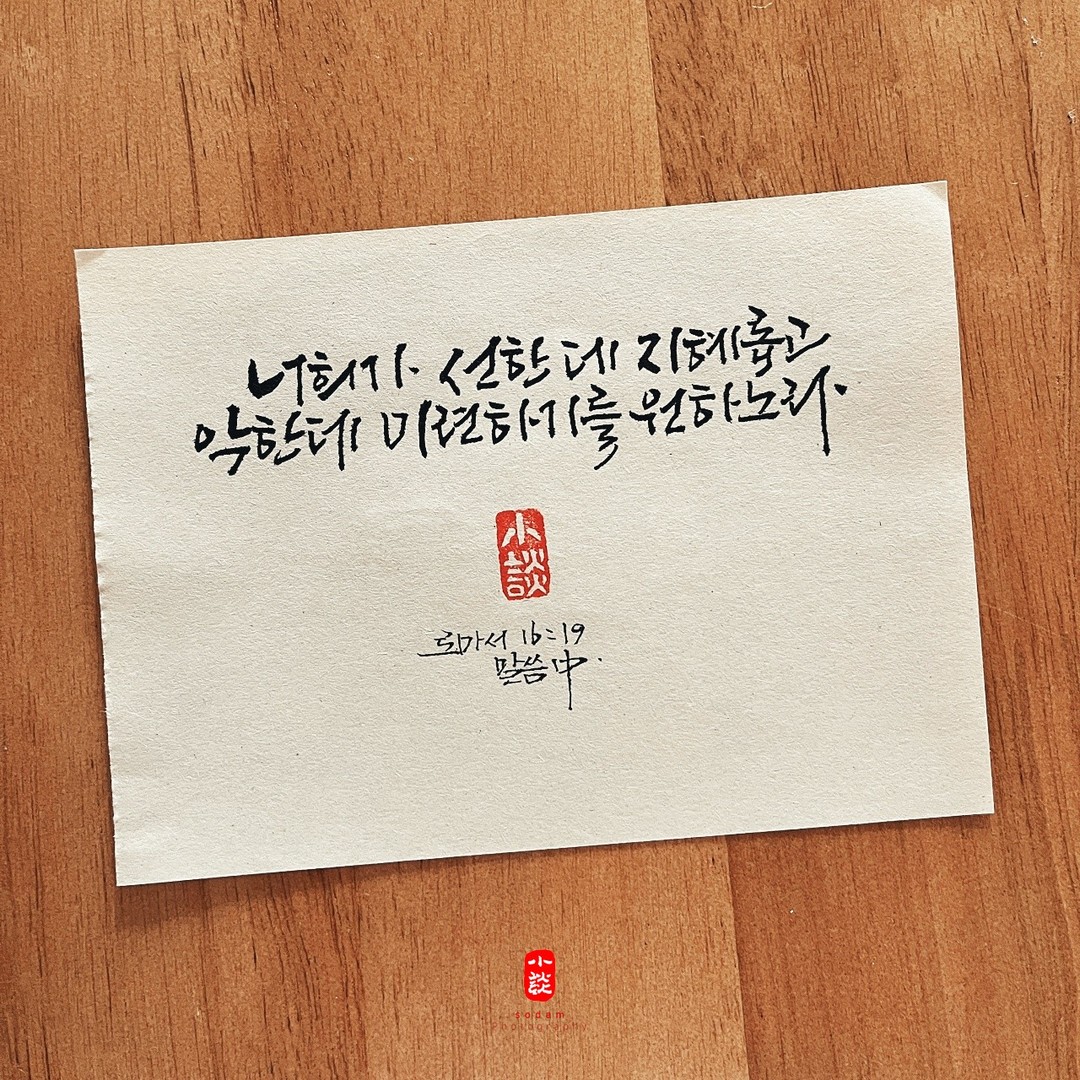 너희가 선한 데 지혜롭고
악한데 미련하기를 원하노라.
小
談
로마서 16:19
말씀 中.
小
談
sodam
Photography